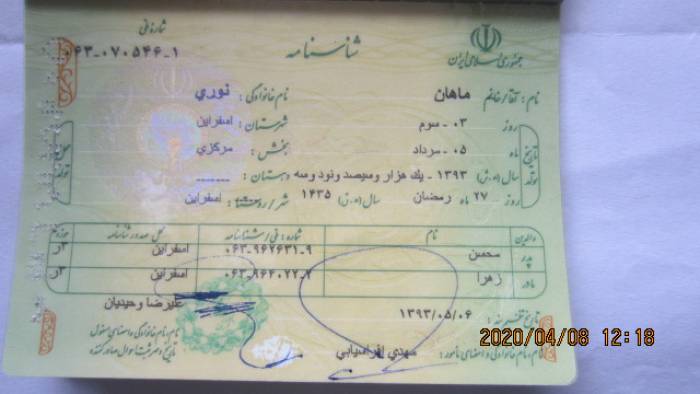 شماره ملی
۰۶۳-۰۷۰۵۴۶-۱
شناسنامه
جمهوری اسلامی ایران
نام : آقا/خانم ماهان نام خانوادگی : نوري
روز ۰۳ - سوم شهرستان : اسفراین
ماه ۰۵ - مرداد بخش : مرکزي
سال (ه.ش) ۱۳۹۳ - یك هزار وسیصد ونود وسه دهستان : -------
روز ۲۷ ماه رمضان سال (ه.ق) ۱۴۳۵ شهر/روستا : اسفراین
تاریخ تولد
محل تولد
والدین نام شماره ملی / شناسنامه محل صدور شناسنامه حوزه
پدر محسن ۰۶۳-۹۶۲۶۳۱-۹ اسفراین
مادر زهرا اسفراین
علیرضا وحیدیان
تاریخ تنظیم سند : ۱۳۹۳/۰۵/۰۶
نام، نام خانوادگی و امضای مسئول
نام، نام خانوادگی و امضای مأمور : مهدي افراسیابي
2020/04/08 12:18